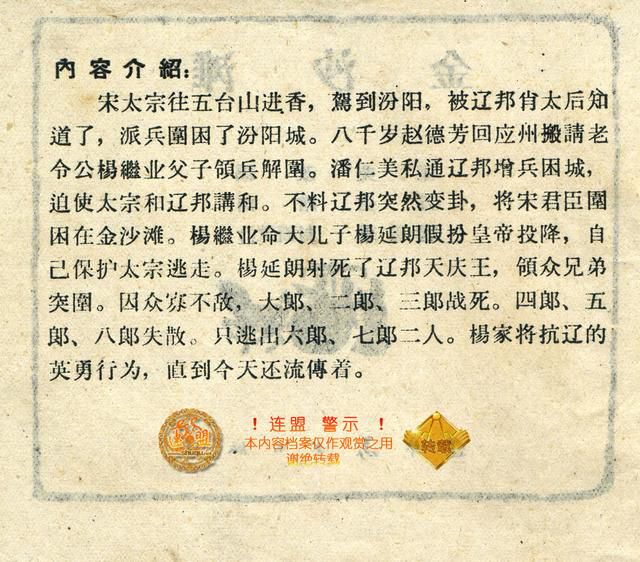 內容介紹:
宋太宗往五台山进香，駕到汾阳，被辽邦肖太后知
道了，派兵圍困了汾阳城。八千岁赵德芳回应州搬請老
令公楊繼业父子領兵解圍。潘仁美私通辽邦增兵困城，
迫使太宗和辽邦講和。不料辽邦突然变卦，将宋君臣圍
困在金沙滩。楊繼业命大儿子楊延朗假扮皇帝投降，自
己保护太宗逃走。楊延朗射死了辽邦天庆王，領众兄弟
突圍。因众寡不敌，大郎、二郎、三郎战死。四郎、五
郎、八郎失散。只逃出六郎、七郎二人。楊家将抗辽的
英勇行为，直到今天还流傳着。
！连盟 警示 ！
本内容档案仅作观赏之用
谢绝转载